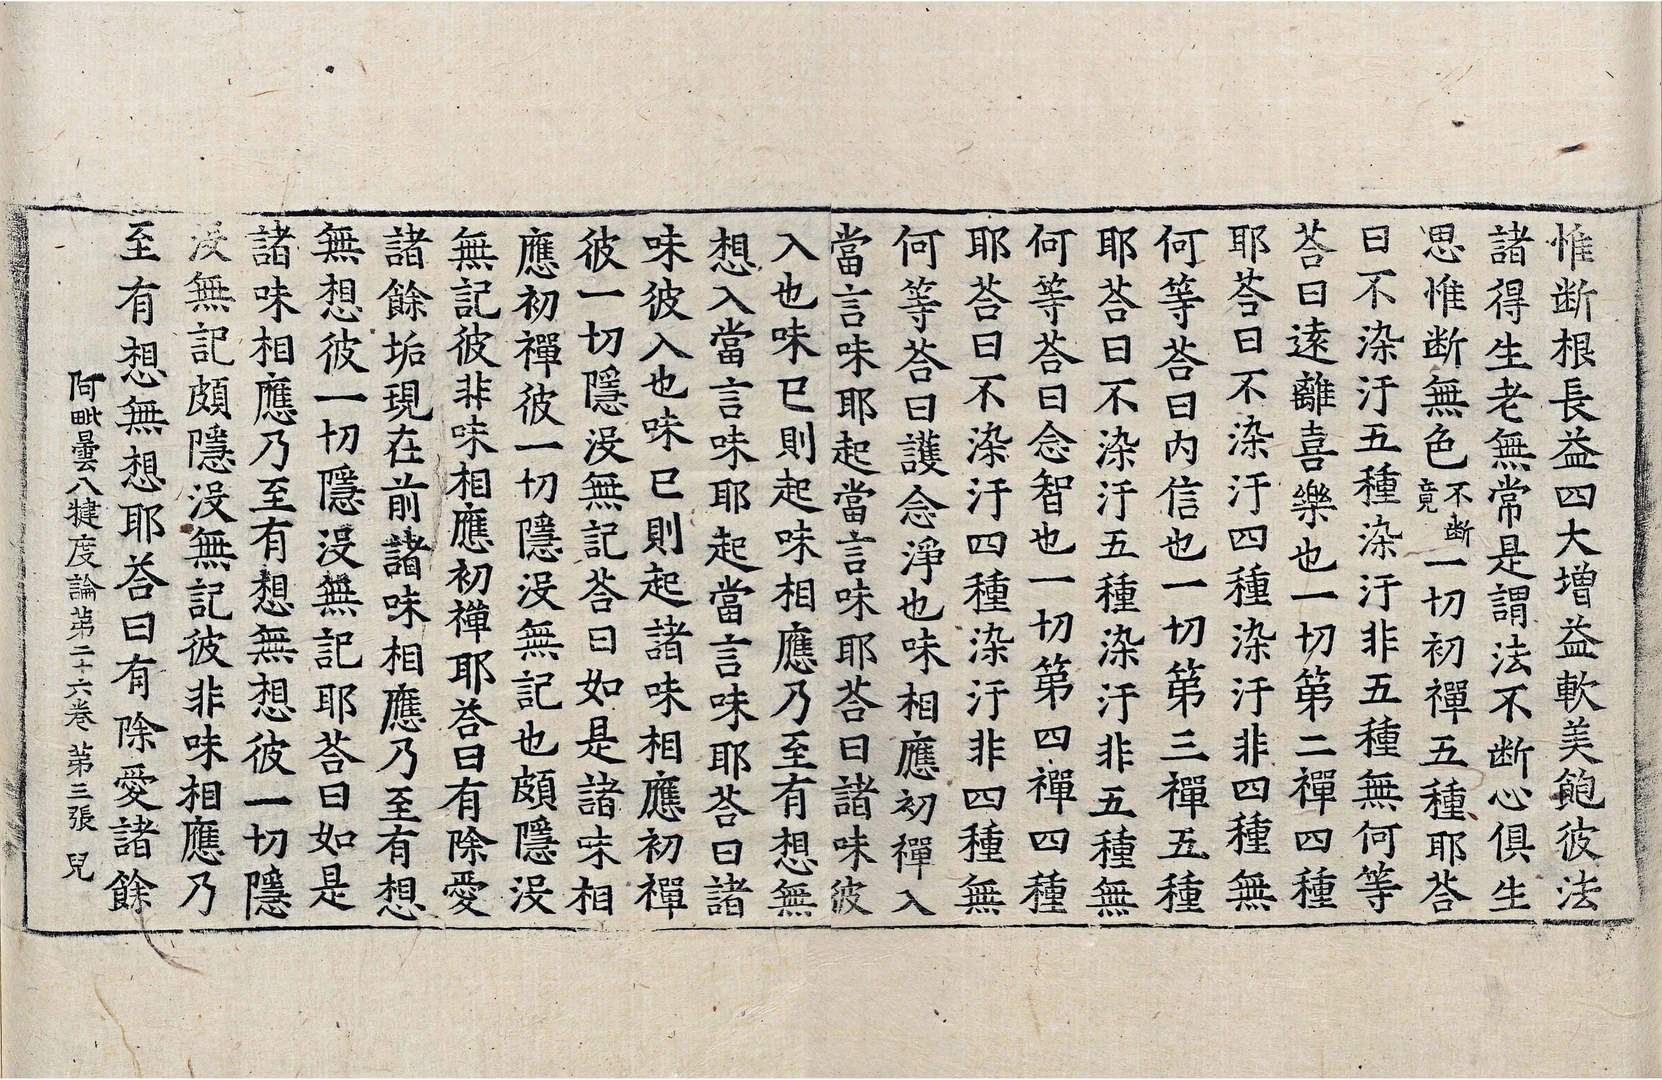 惟断根長益四大増益軟美飽彼法
諸得生老無常是謂法不断心俱生
思惟断無色不断竟一切初禪五種耶荅
曰不染汙五種染汙非五種無何等
荅曰遠離喜樂也一切第二禪四種
耶荅曰不染汙四種染汙非四種無
何等荅曰内信也一切第三禪五種
耶荅曰不染汙五種染汙非五種無
何等荅曰念智也一切第四禪四種
耶荅曰不染汙四種染汙非四種無
何等荅曰護念淨也味相應初禪入
當言味耶起當言味耶荅曰諸味彼
入也味已則起味相應乃至有想無
想入當言味耶起當言味耶荅曰諸
味彼入也味已則起諸味相應初禪
彼一切隱没無記荅曰如是諸味相
應初禪彼一切隱没無記也頗隱没
無記彼非味相應初禪耶荅曰有除愛
諸餘垢現在前諸味相應乃至有想
無想彼一切隱没無記耶荅曰如是
諸味相應乃至有想無想彼一切隱
没無記頗隱没無記彼非味相應乃
至有想無想耶荅曰有除愛諸餘
阿毗曇八犍度論第二十六卷 第三張 兒